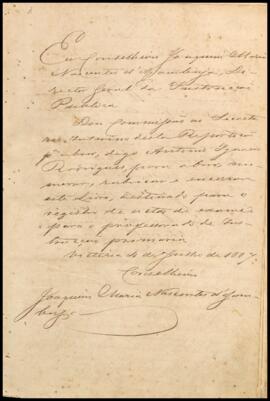 Eu Conselheiro Joaquim Maria
Nascentes d'Azambuja, Di-
rector Geral da Instrucção
Publica
Dou commissão ao Secreta
rio desta Repartição
digo Antonio Ignacio
Rodrigues, para abrir, nu-
merar, rubricar e encerrar
este Livro, destinado para o
registro de actos de exames
para o professorado de Ins-
trucção primaria
Victoria 4 de Julho de 1887.
Conselheiro
Joaquim Maria Nascentes d'Azam-
buja